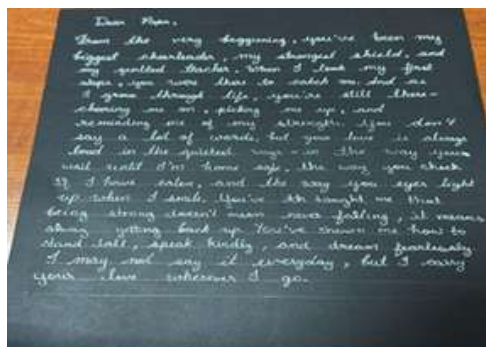 Dear Papa,
From the very beggining, you've been my
biggest cheerleader, my strongest shield, and
my quitled teacher. When I took my first
steps, you were there to catch me. And as
I grow through life, you're still there-
cheering me on, picking me up, and
reminding me of my strength. You don't
say a lot of words, but your love is always
loud in the quitest ways- in the way you
wait until I'm home safe, the way you check
If I have eaten, and the way you eyes light
up when I smile. You've taught me that
being strong doesn't mean never falling, it means
always getting back up. You've shown me how to
stand tall, speak kindly, and dream fearlessly.
I may not say it everyday, but I carry
your love wherever I go.